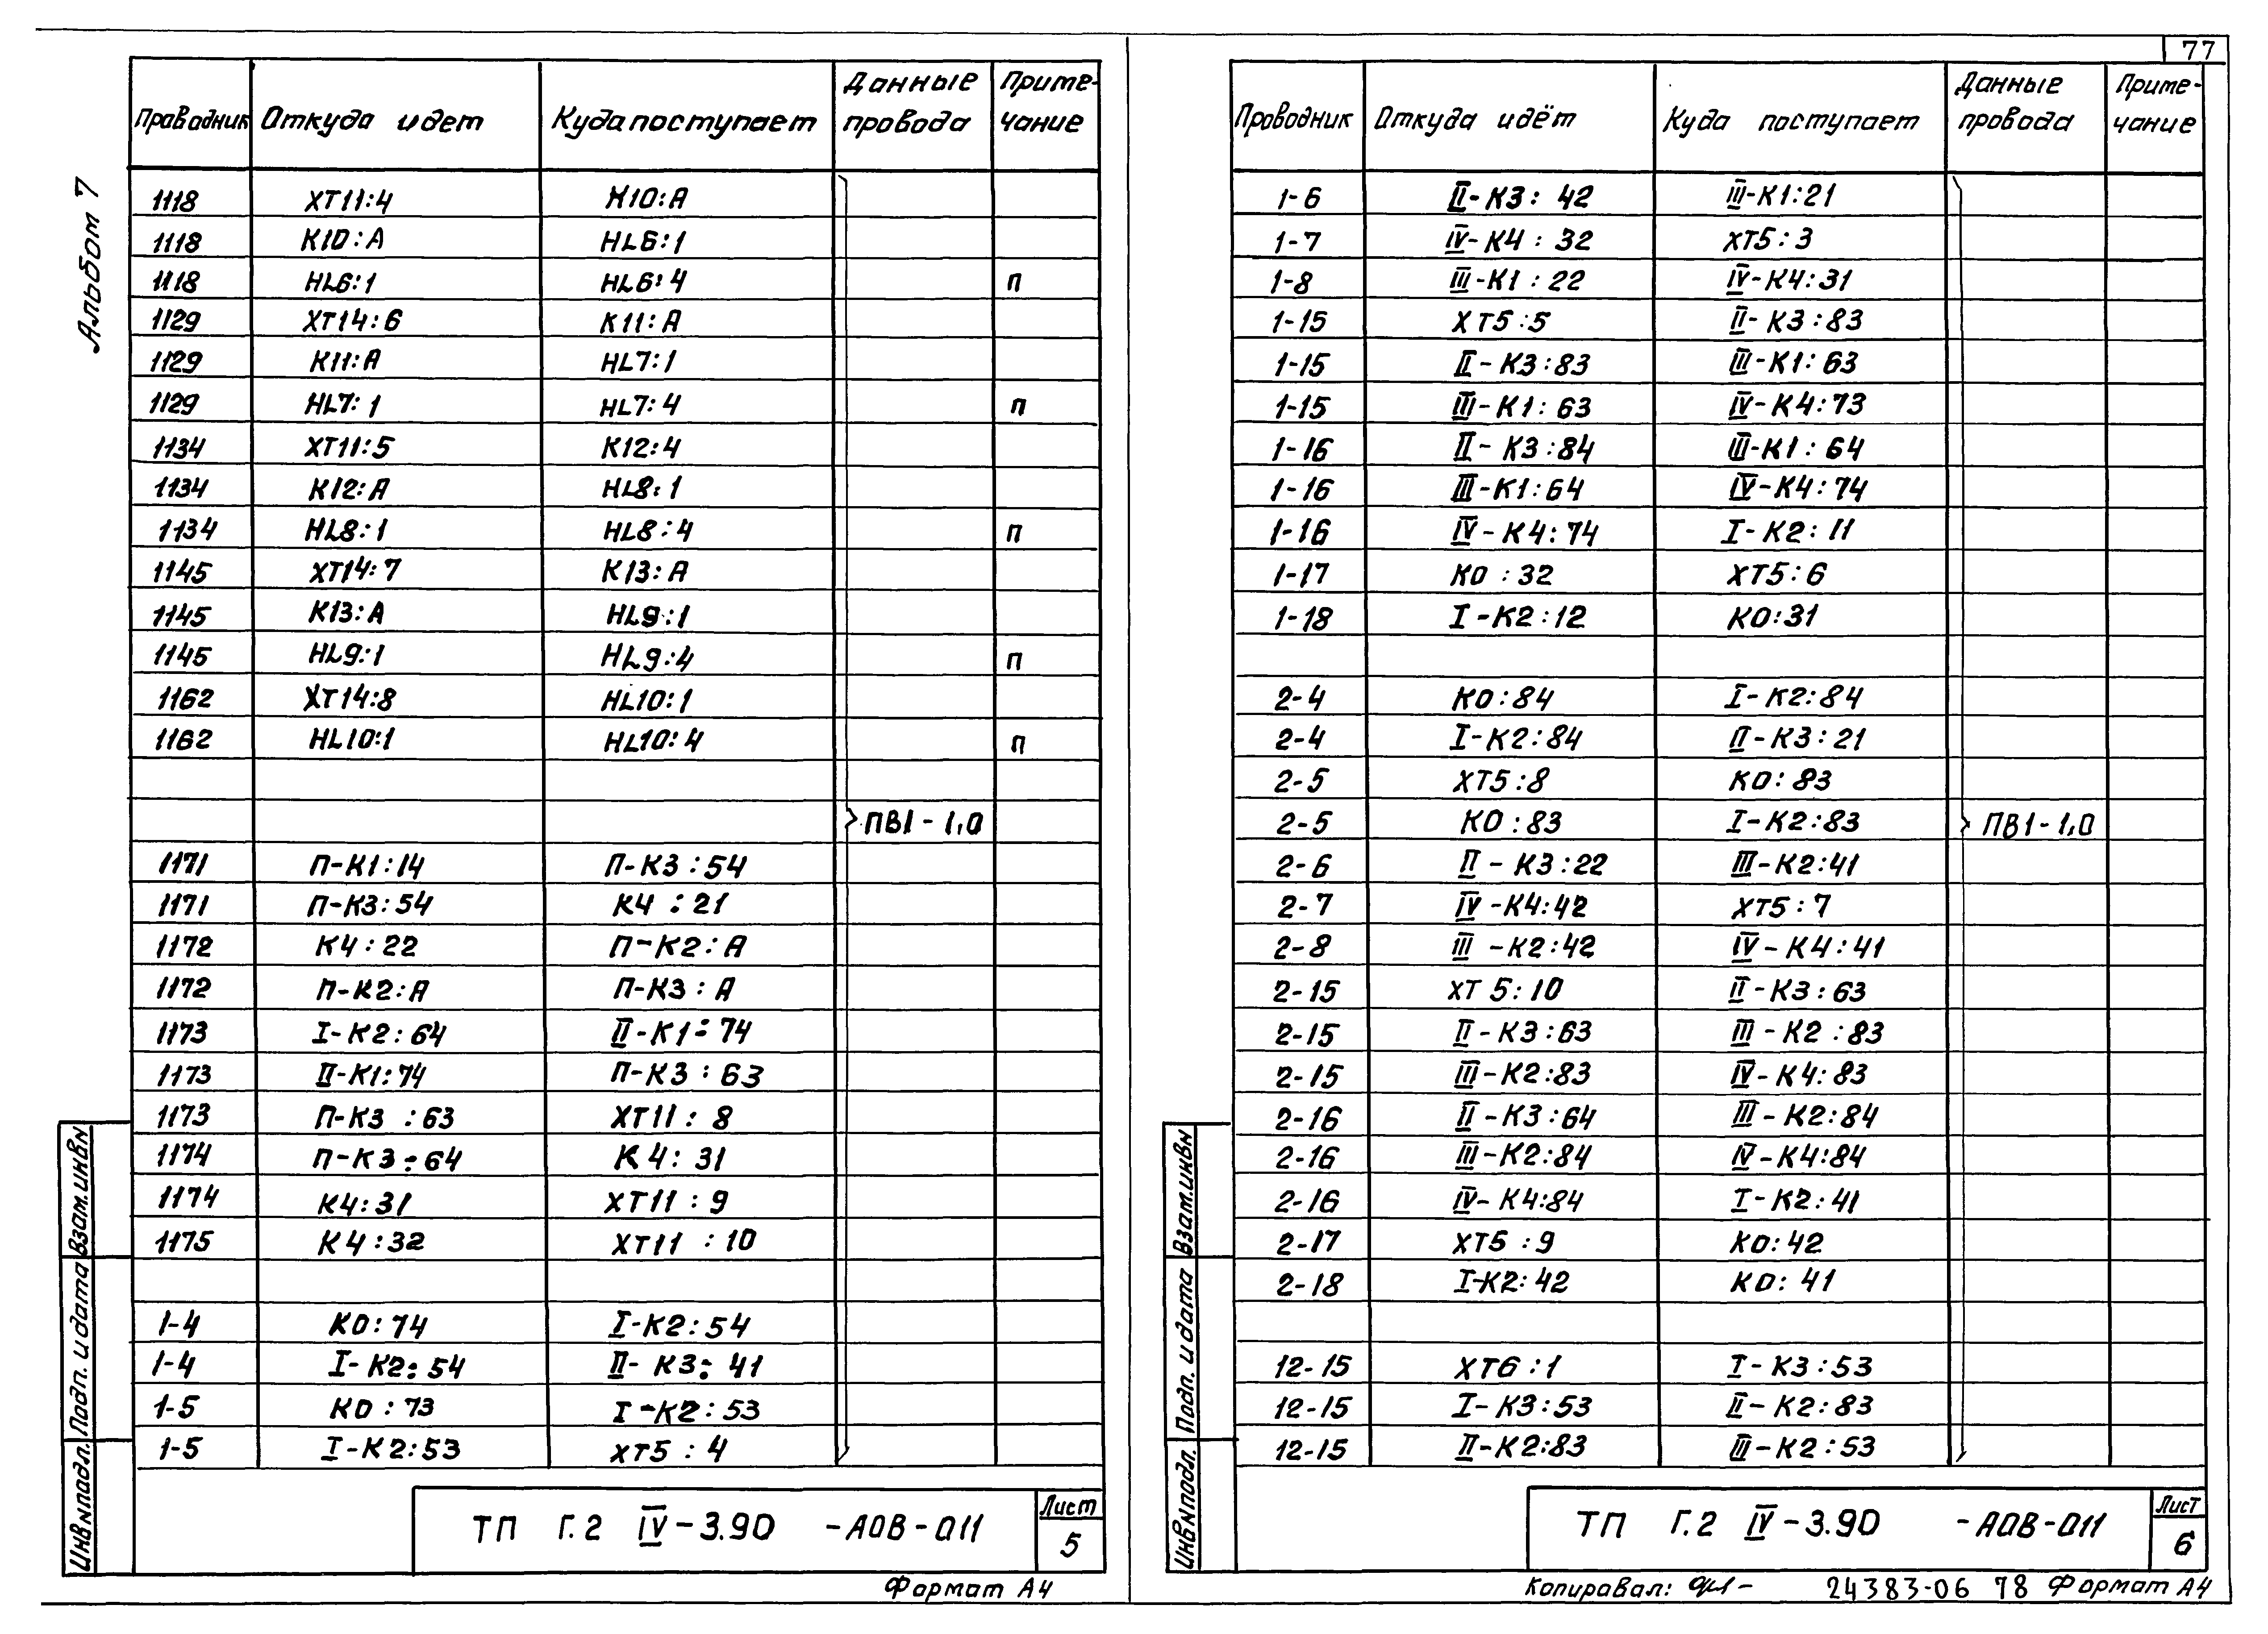 77
Альбом 7
Проводник Откуда идет Куда поступает Данные провода Приме-чание
1118 ХТ11:4 К10:А
1118 К10:А HL6:1
1118 HL6:1 HL6:4 п
1129 ХТ14:6 К11:А
1129 К11:А HL7:1
1129 HL7:1 HL7:4 п
1134 ХТ11:5 К12:4
1134 К12:А HL8:1
1134 HL8:1 HL8:4 п
1145 ХТ14:7 К13:А
1145 К13:А HL9:1
1145 HL9:1 HL9:4 п
1162 ХТ14:8 HL10:1
1162 HL10:1 HL10:4 п
ПВ1-1,0
1171 П-К1:14 П-К3:54
1171 П-К3:54 К4:21
1172 К4:22 П-К2:А
1172 П-К2:А П-К3:А
1173 I-К2:64 II-К1:74
1173 II-К1:74 П-К3:63
1173 П-К3:63 ХТ11:8
1174 П-К3:64 К4:31
1174 К4:31 ХТ11:9
1175 К4:32 ХТ11:10
1-4 К0:74 I-К2:54
1-4 I-К2:54 II-К3:41
1-5 К0:73 I-К2:53
1-5 I-К2:53 ХТ5:4
Взам.инвN
Подп. и дата
ИнвNподл.
ТП Г.2 IV-3.90 -АОВ-011
Лист
5
Формат А4
Проводник Откуда идёт Куда поступает Данные провода Приме-чание
1-6 II-К3:42 III-К1:21
1-7 IV-К4:32 ХТ5:3
1-8 III-К1:22 IV-К4:31
1-15 ХТ5:5 II-К3:83
1-15 II-К3:83 III-К1:63
1-15 III-К1:63 IV-К4:73
1-16 II-К3:84 III-К1:64
1-16 III-К1:64 IV-К4:74
1-16 IV-К4:74 I-К2:11
1-17 К0:32 ХТ5:6
1-18 I-К2:12 К0:31
2-4 К0:84 I-К2:84
2-4 I-К2:84 II-К3:21
2-5 ХТ5:8 К0:83
2-5 К0:83 I-К2:83 ПВ1-1,0
2-6 II-К3:22 III-К2:41
2-7 IV-К4:42 ХТ5:7
2-8 III-К2:42 IV-К4:41
2-15 ХТ5:10 II-К3:63
2-15 II-К3:63 III-К2:83
2-15 III-К2:83 IV-К4:83
2-16 II-К3:64 III-К2:84
2-16 III-К2:84 IV-К4:84
2-16 IV-К4:84 I-К2:41
2-17 ХТ5:9 К0:42
2-18 I-К2:42 К0:41
12-15 ХТ6:1 I-К3:53
12-15 I-К3:53 II-К2:83
12-15 II-К2:83 III-К2:53
Взам.инвN
Подп. и дата
ИнвNподл.
ТП Г.2 IV-3.90 -АОВ-011
Лист
6
Копировал: 24383-06 78 Формат А4